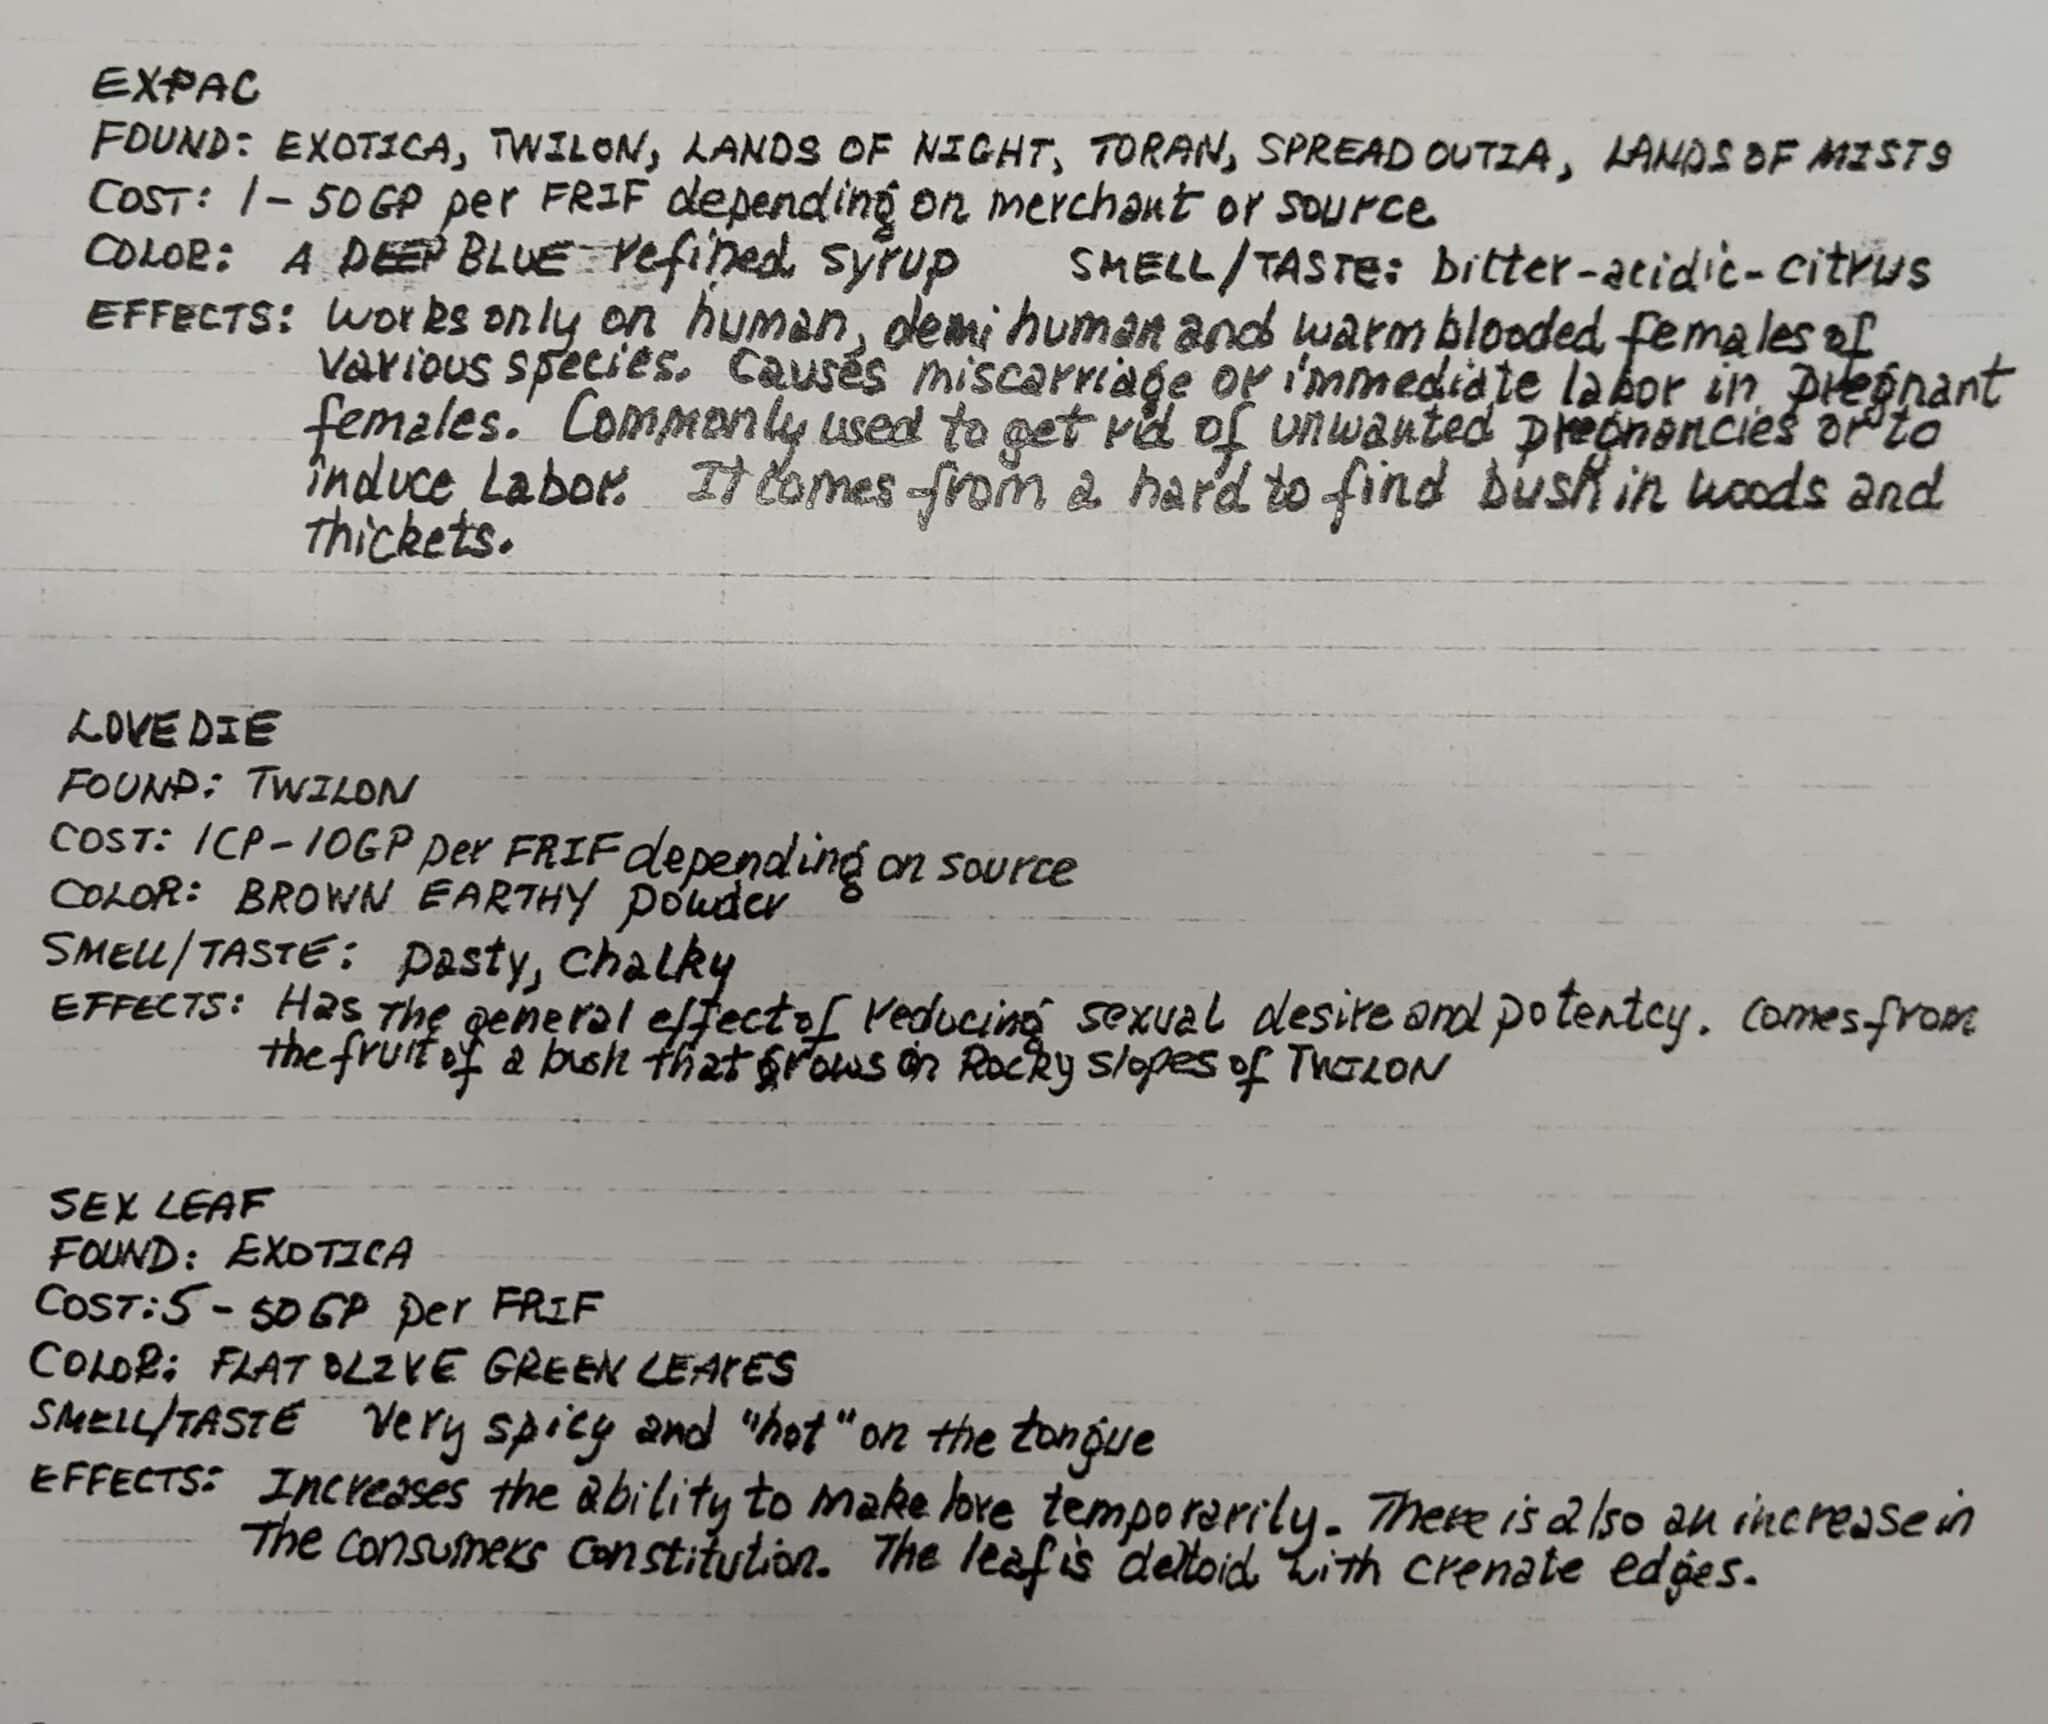 EXPAC
FOUND: EXOTICA, TWILON, LANDS OF NIGHT, TORAN, SPREADOUTIA, LANDS OF MISTS
COST: 1-50GP per FRIF depending on merchant or source
COLOR: A DEEP BLUE refined syrup SMELL/TASTE: bitter-acidic-citrus
EFFECTS: works only on human, demi human and warm blooded females of
various species. Causes miscarriage or immediate labor in pregnant
females. Commonly used to get rid of unwanted pregnancies or to
induce Labor. It comes from a hard to find bush in woods and
thickets.
LOVE DIE
FOUND: TWILON
COST: 1CP-10GP per FRIF depending on source
COLOR: BROWN EARTHY powder
SMELL/TASTE: pasty, chalky
EFFECTS: Has the general effect of reducing sexual desire and potentcy. Comes from
the fruit of a bush that grows on Rocky slopes of TWILON
SEX LEAF
FOUND: EXOTICA
COST: 5-50GP per FRIF
COLOR: FLAT OLIVE GREEN LEAVES
SMELL/TASTE very spicy and "hot" on the tongue
EFFECTS: Increases the ability to make love temporarily. There is also an increase in
The consumers constitution. The leaf is deltoid with crenate edges.